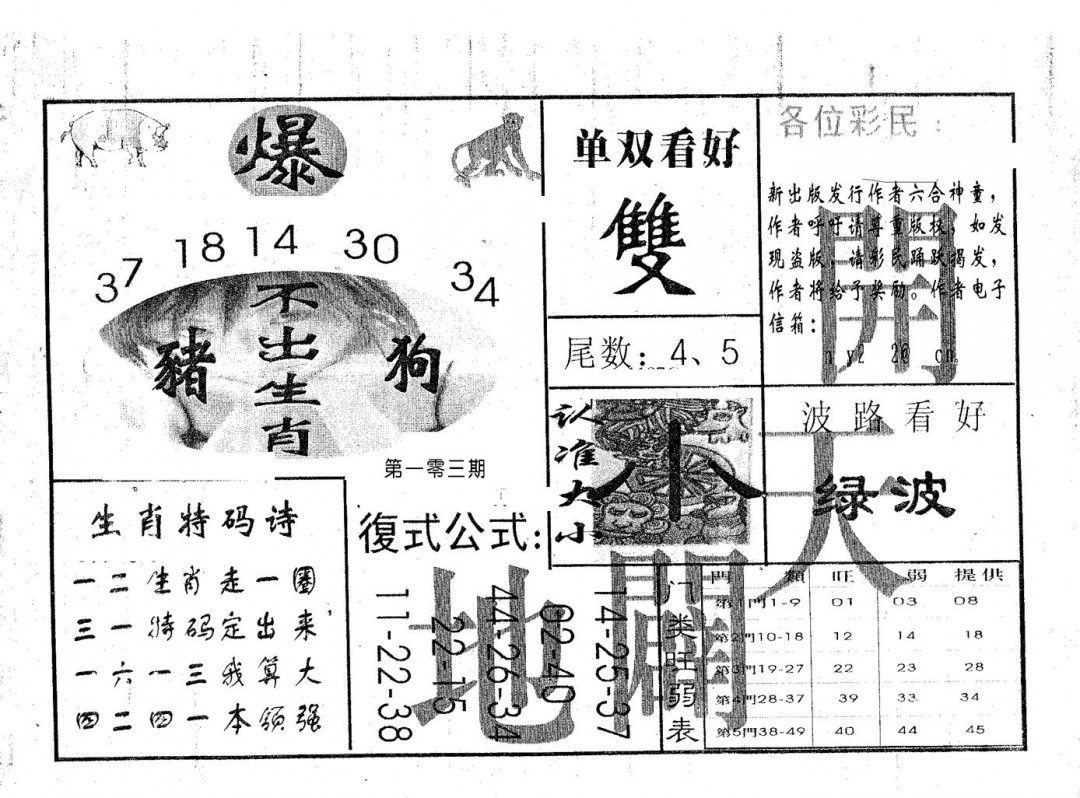 爆
37 18 14 30 34
不出生肖
豬
狗
第一零三期
单双看好
雙
尾数：4、5
各位彩民：
新出版发行作者六合神童，
作者呼吁请尊重版权，如发
现盗版，请彩民踊跃揭发，
作者将给予奖励。作者电子
信箱：
開
天
闢
地
认准大小
小
波路看好
绿波
生肖特码诗
一二生肖走一圈
三一特码定出来，
一六一三我算大
四二四一本领强
復式公式：
14-25-37
02-40
44-26-34
22-15
11-22-38
八类旺弱表
門類 旺 弱 提供
第1門1-9 01 03 08
第2門10-18 12 14 18
第3門19-27 22 23 28
第4門28-37 39 33 34
第5門38-49 40 44 45